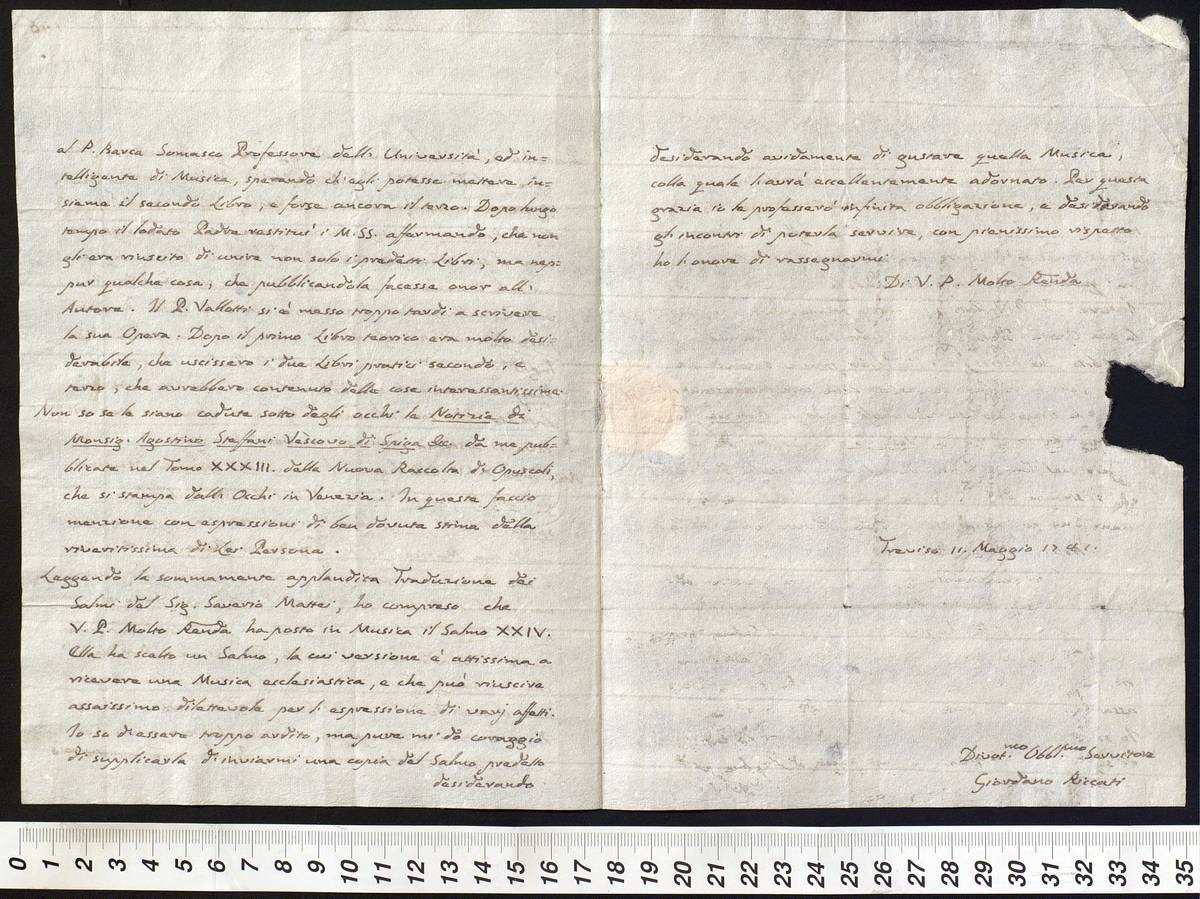 al P. Barca Somasco Professore dell' Università, ed in=
telligente di Musica, sperando ch'egli potesse mettere in=
sieme il secondo Libro, e forse ancora il terzo. Dopo lungo
tempo il lodato Padre restituì i M.SS. affermando, che non
gli era riuscito di unire non solo i predetti Libri, ma nep=
pur qualche cosa, che pubblicandola facesse onor all'
Autore. Il P. Vallotti si è messo troppo tardi a scrivere
la sua Opera. Dopo il primo Libro teorico era molto desi=
derabile, che uscissero i due Libri pratici secondo, e
terzo, che avrebbero contenuto delle cose interessantissime.
Non so se le siano cadute sotto degli occhi le Notizie di
Monsig. Agostino Steffani Vescovo di Spiga &c. da me pub=
blicate nel Tomo XXXIII. della Nuova Raccolta di Opuscoli,
che si stampa dall' Occhi in Venezia. In queste faccio
menzione con espressioni di ben dovuta stima della
riveritissima di Lei Persona.
Leggendo la sommamente applaudita Traduzione dei
Salmi del Sig. Saverio Mattei, ho compreso che
V. P. Molto Renda ha posto in Musica il Salmo XXIV.
Ella ha scelto un Salmo, la cui versione è attissima a
ricevere una Musica ecclesiastica, e che può riuscire
assaissimo dilettevole per l'espressione di varj affetti.
Io so d'essere troppo ardito, ma pure mi do coraggio
di supplicarla di inviarmi una copia del Salmo predetto
desiderando
desiderando avidamente di gustare quella Musica,
colla quale l'avrà eccellentemente adornato. Per questa
grazia io le professerò infinita obbligazione, e desiderando
gl'incontri di poterla servire, con pienissimo rispetto
ho l'onore di rassegnarmi
Di V. P. Molto Renda
Treviso 11. Maggio 1781.
Divot.mo Obbl.mo Servitore
Giordano Riccati
0 1 2 3 4 5 6 7 8 9 10 11 12 13 14 15 16 17 18 19 20 21 22 23 24 25 26 27 28 29 30 31 32 33 34 35